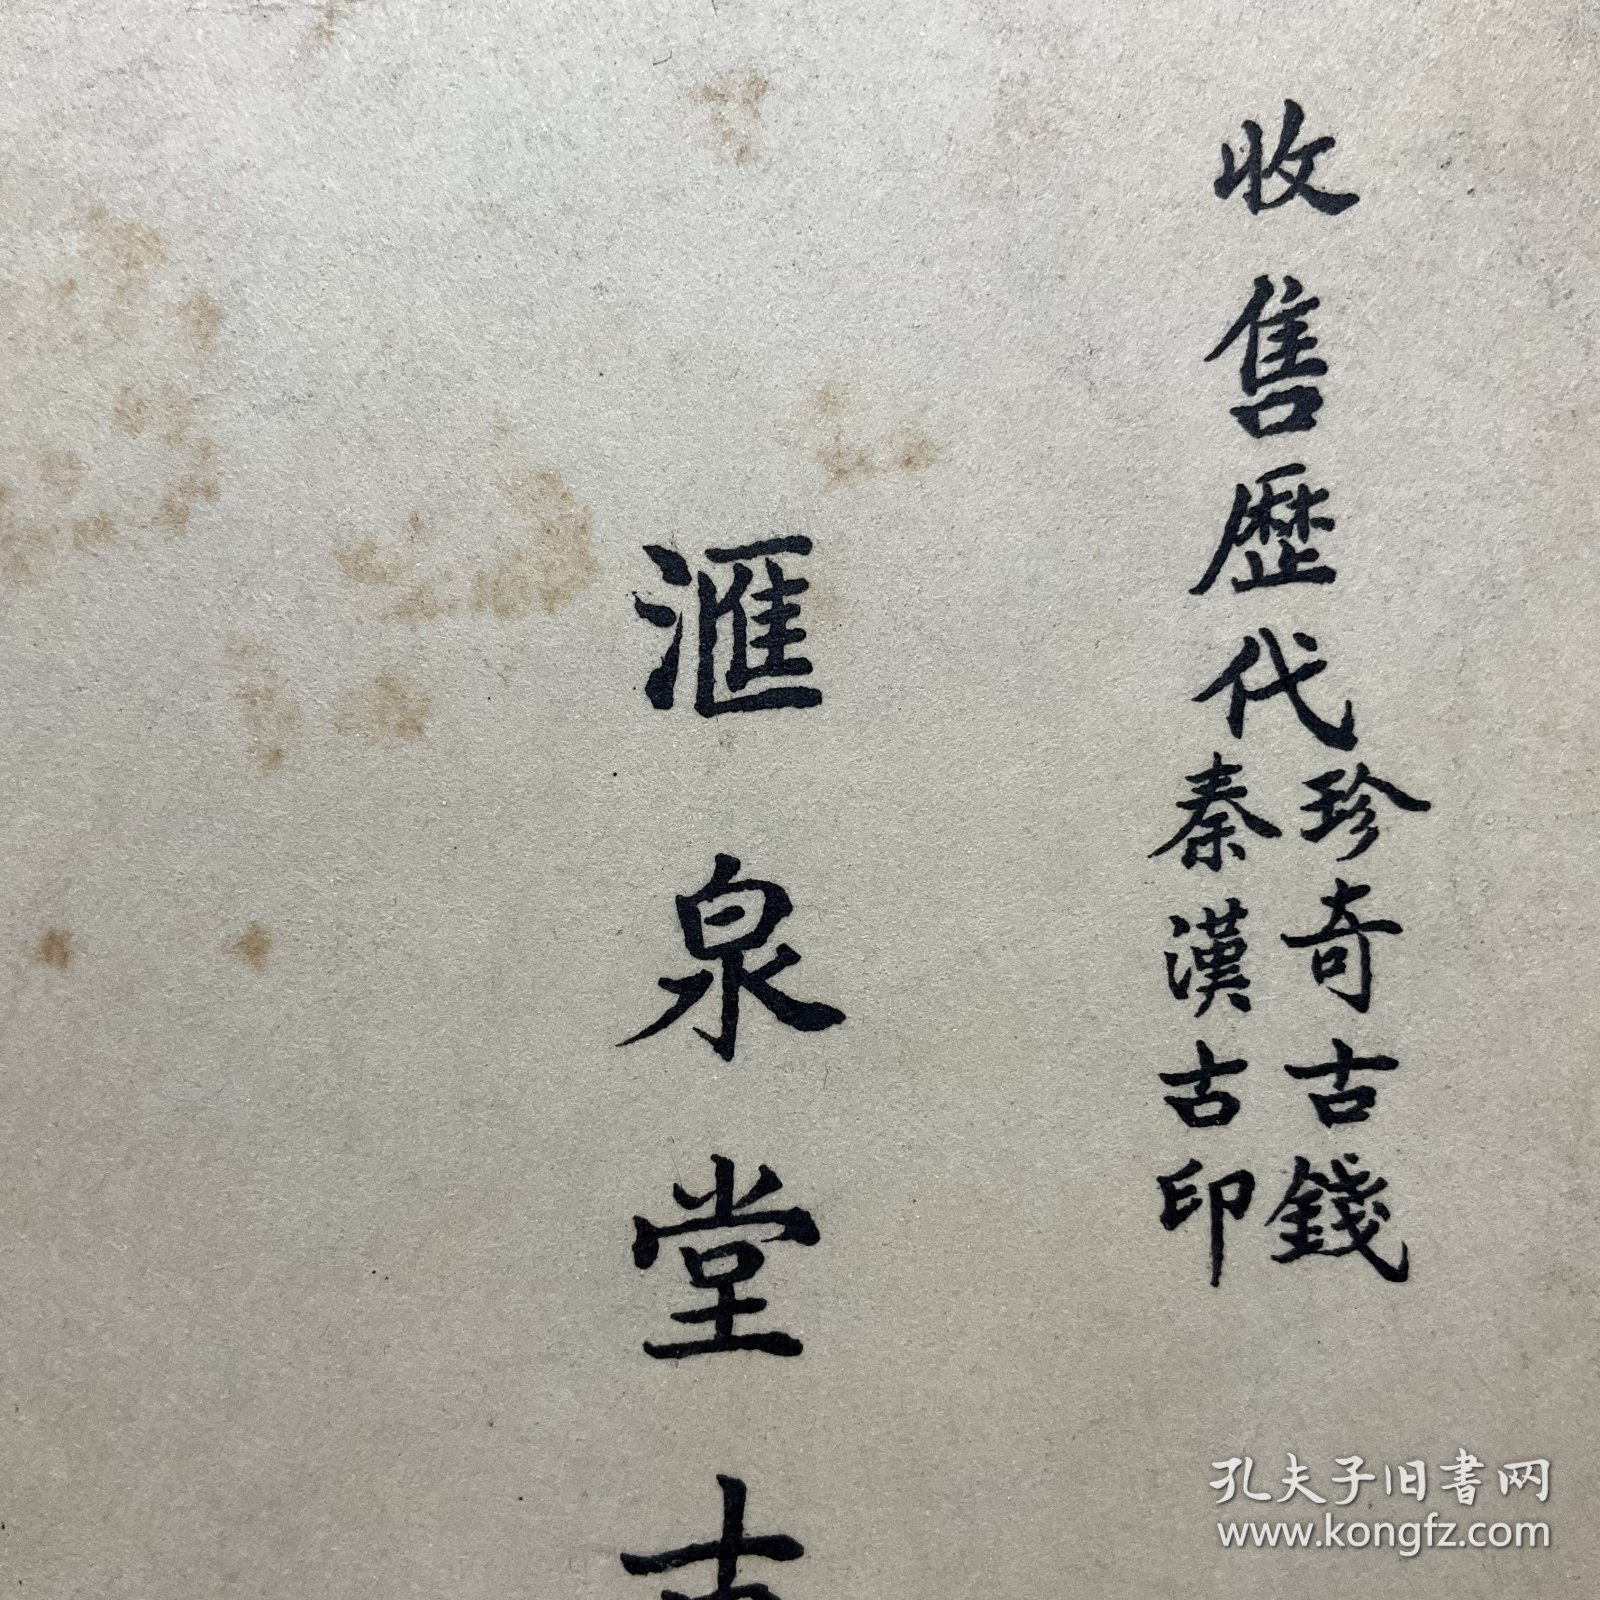 收售歷代
珍奇古錢
秦漢古印
滙泉堂
孔夫子旧書网
www.kongfz.com